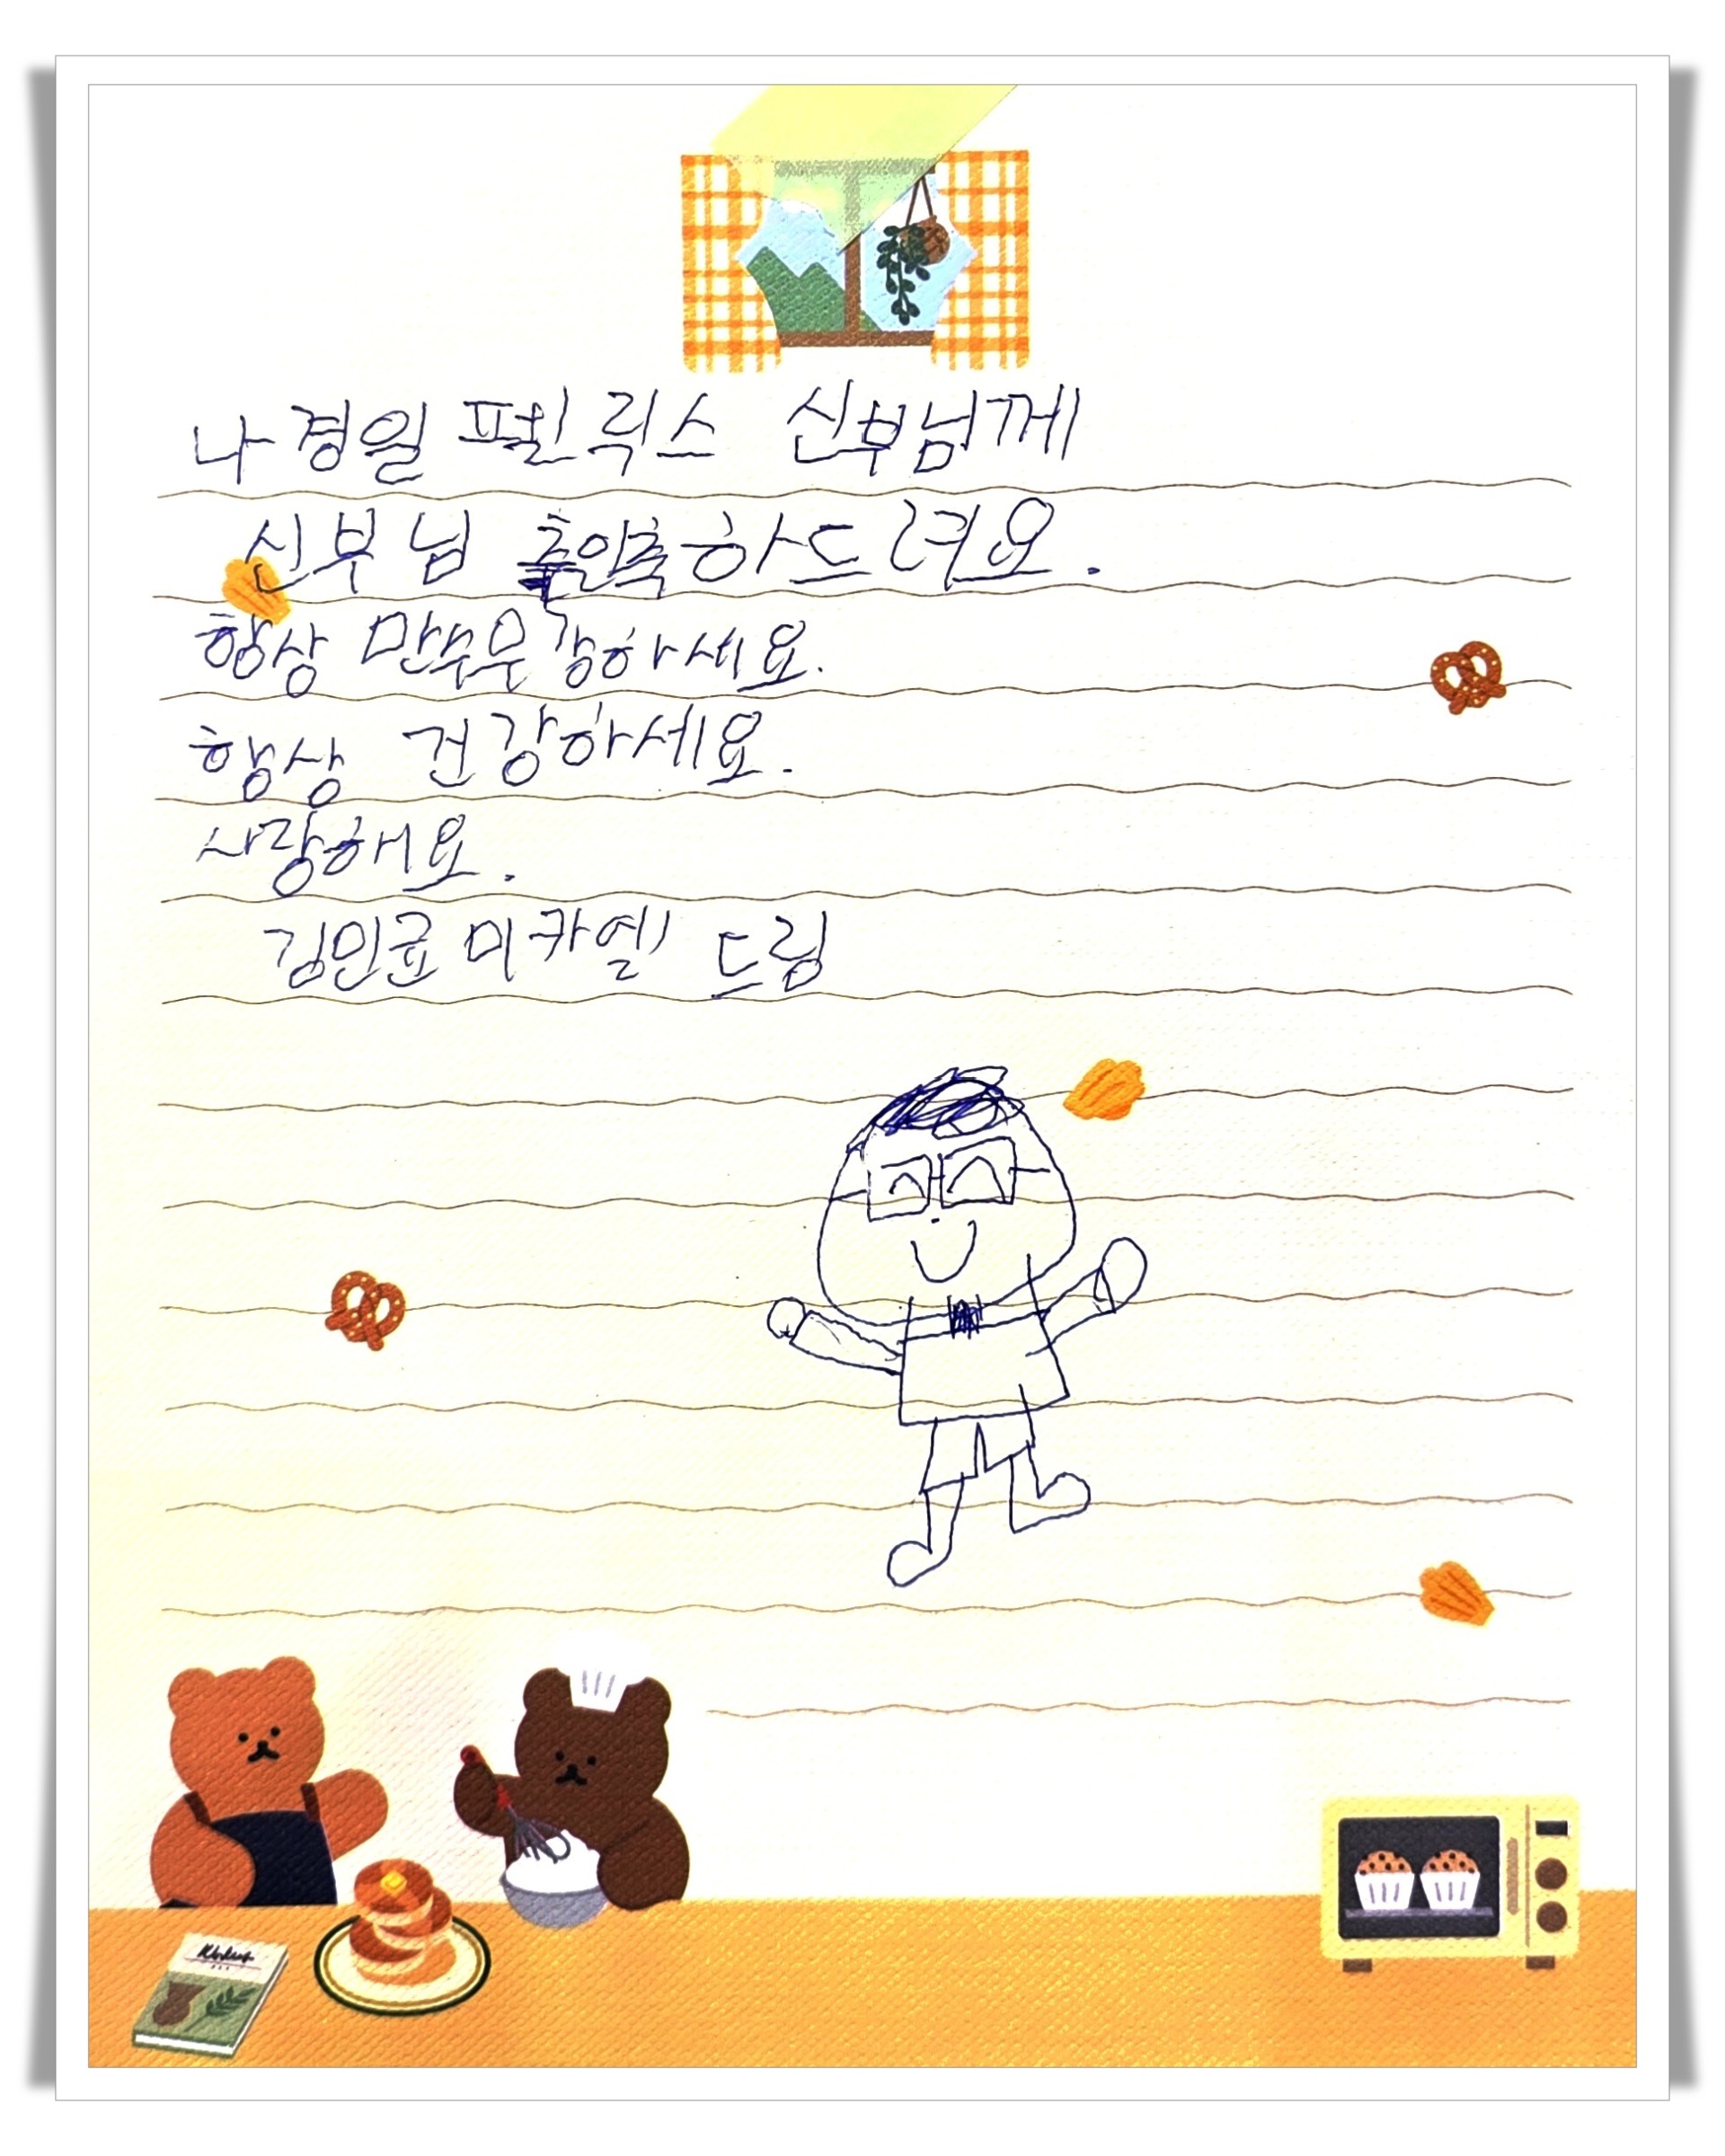 나경일 펠릭스 신부님께
신부님 축하드려요.
항상 만수무강하세요.
항상 건강하세요.
사랑해요.
김민균 미카엘 드림